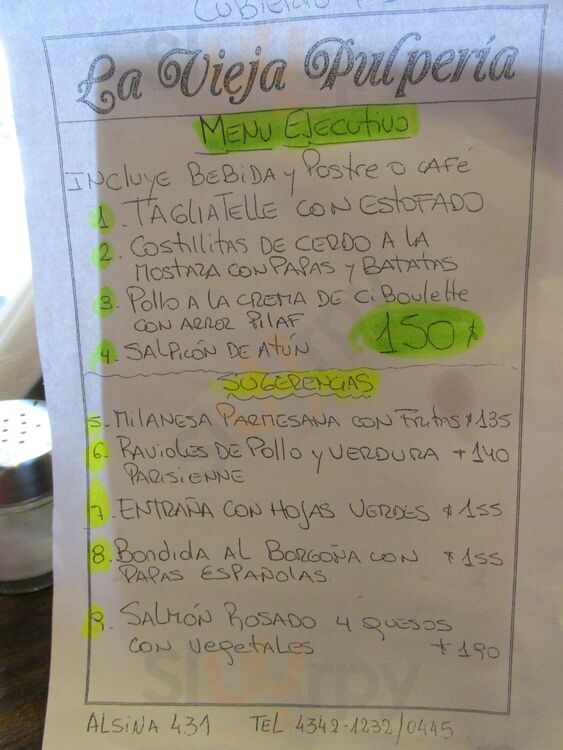 CUBIERTO
La Vieja Pulpería
MENU EJECUTIVO
INCLUYE BEBIDA y Postre o CAFÉ
1. TAGLIATELLE CON ESTOFADO
2. COSTILLITAS DE CERDO A LA
MOSTAZA CON PAPAS y BATATAS
3. Pollo A LA CREMA DE CiBoulette
CON ARROZ PILAF
150$
4. SALPICÓN DE ATÚN
SUGERENCIAS
5. MILANESA PARMESANA CON Fritas $135
6. RAVIOLES DE Pollo y VERDURA $140
PARISIENNE
7. ENTRAÑA CON HOJAS VERDES $155
8. Bondida AL BORGOÑA CON $155
PAPAS ESPAÑOLAS.
9. SALMÓN ROSADO 4 QUESOS
CON vegetales $190
ALSINA 431 TEL 4342-1232/0445
Sluurpy